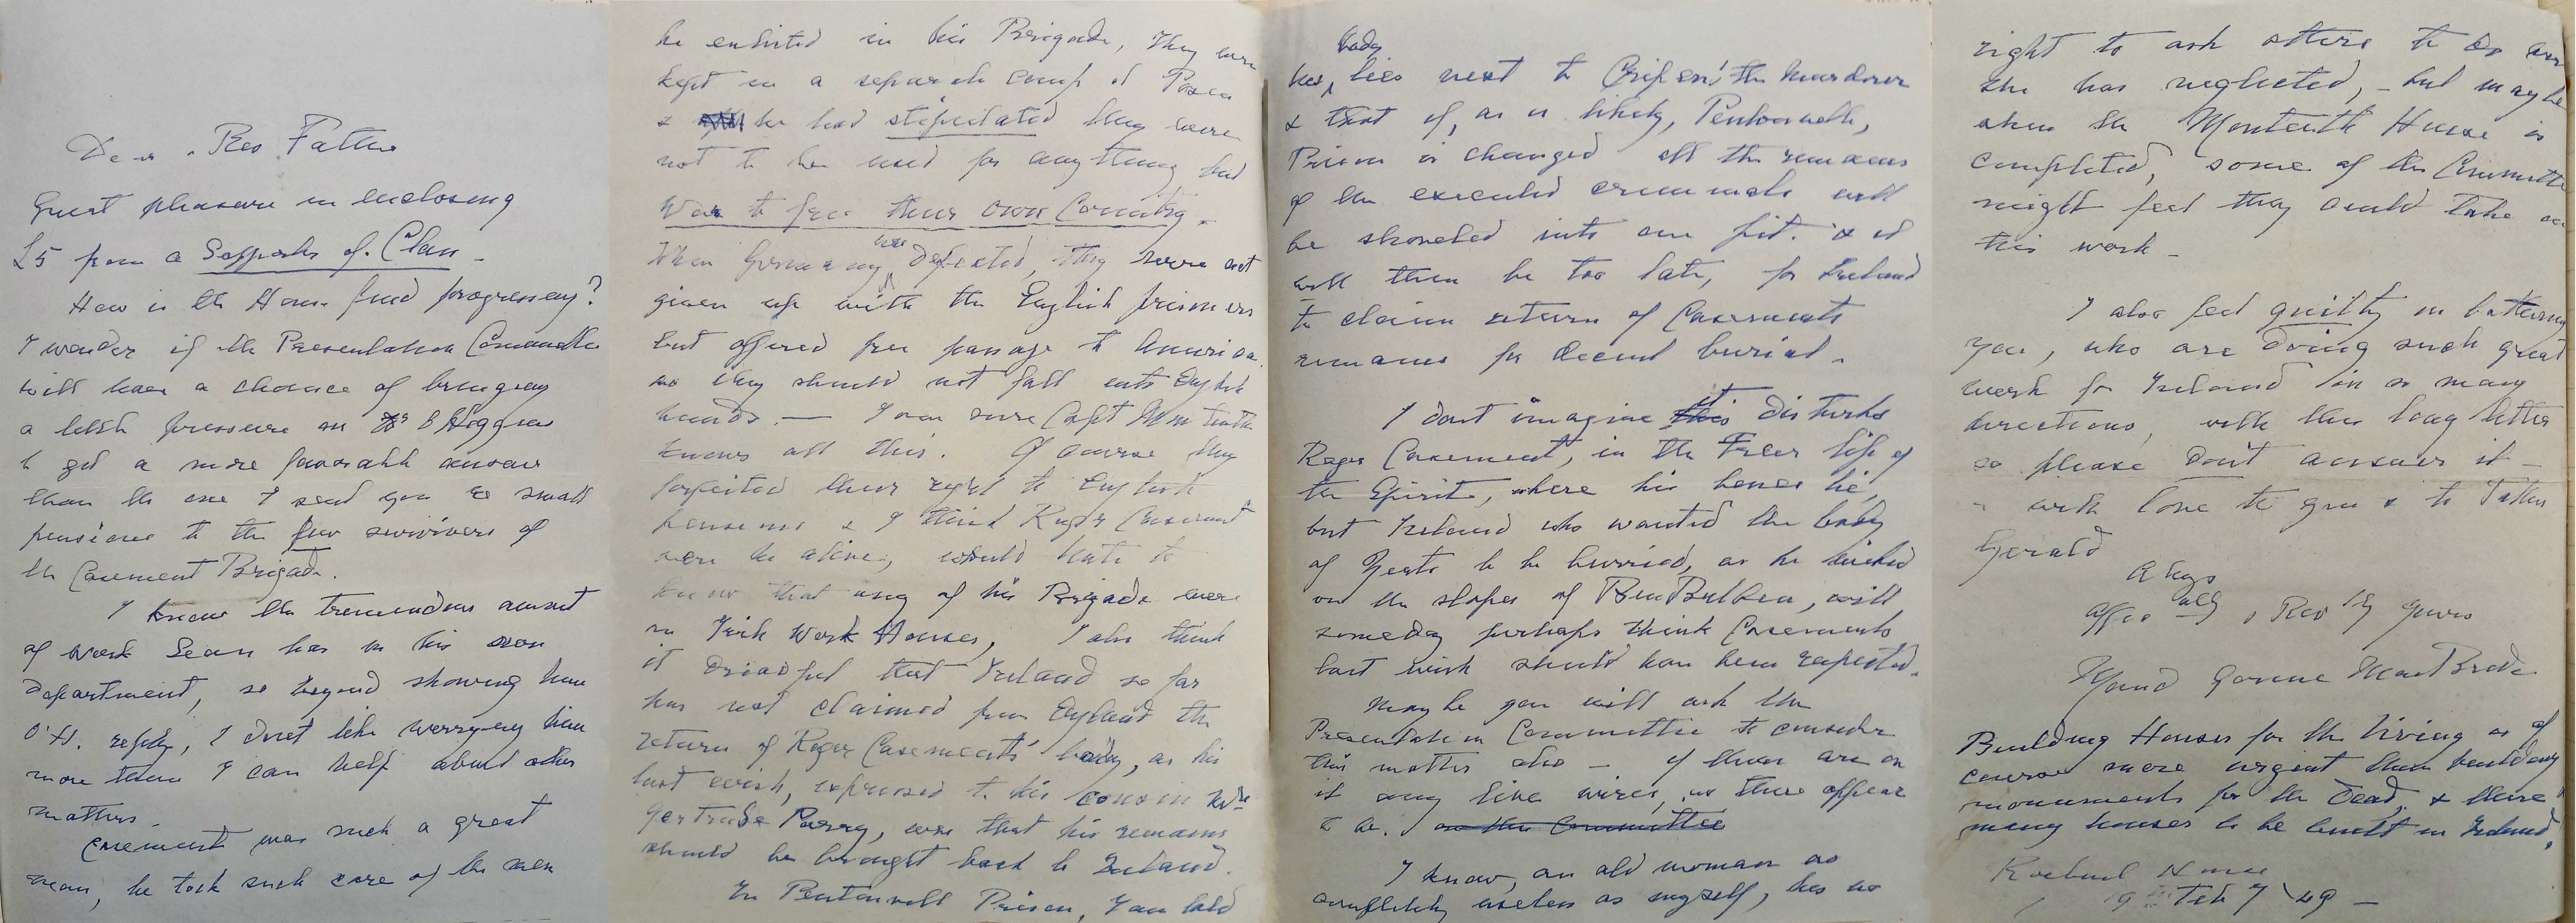 Dear Rev Father
Great pleasure in enclosing
£5 from a Supporter of Clan -
How is the House fund progressing?
I wonder if the Presentation Committee
will have a chance of bringing
a little pressure on O'Higgins
to get a more favorable answer
than the one I send you re small
pensions to the few survivors of
the Casement Brigade.
I know the tremendous amount
of work Sean has in his own
department, so beyond showing him
O'H. reply, I dont like worrying him
more than I can help about other
matters.
Casement was such a great
man, he took such care of the men
he enlisted in his Brigade, they were
kept in a separate camp at
& he had stipulated they were
not to be used for anything but
War to free their own Country.
When Germany was Defeated, they were not
given up with the English prisoners
but offered free passage to America
so they should not fall into English
hands. — I am sure Capt Monteith
knows all this. Of course they
forfeited their right to English
pensions & I think Roger Casement
were he alive, would hate to
know that any of his Brigade were
in Irish Work Houses, I also think
it dreadful that Ireland so far
has not claimed from England the
return of Roger Casements' body, as his
last wish, expressed to his cousin Mrs
Gertrude Parry, was that his remains
should be brought back to Ireland.
In Pentonvill Prison, I am told
his body lies next to Cripen' the murderer
& that if, as is likely, Pentonville,
Prison is changed all the remains
of the executed criminals will
be shoveled into one pit. & it
will then be too late, for Ireland
to claim return of Casements
remains for decent burial -
I dont imagine it disturbs
Roger Casement, in the Freer life of
the Spirit, where his bones lie,
but Ireland who wanted the body
of Yeats to be burried, as he wished
on the slopes of Ben Bulben, will
someday perhaps think Casements
last wish should have been respected.
Maybe you will ask the
Presentation Committee to consider
this matter also — if there are on
it any live wires, as there appear
to be. on the Committee
I know, an old woman as
completely useless as myself, has no
right to ask others to do what
she has neglected, - but maybe
when the Monteith House is
completed, some of the Committee
might feel they could take on
this work -
I also feel guilty in bothering
you, who are doing such great
work for Ireland in so many
directions, with this long letter
so please dont answer it -
with love to you & to Father
Gerald
Always
Affectionately & Revly Yours
Maud Gonne MacBride
Building Houses for the living is of
course more urgent than building
monuments for the Dead, & there
many houses to be built in Ireland.
Roebuck House
9 Feb 49 -